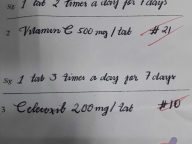 Sx 1 tab 2 times a day for 7 days
2 Vitamin C 500 mg / tab #21
Sx 1 tab 3 times a day for 7 days
3 Celecoxib 200 mg / tab #10